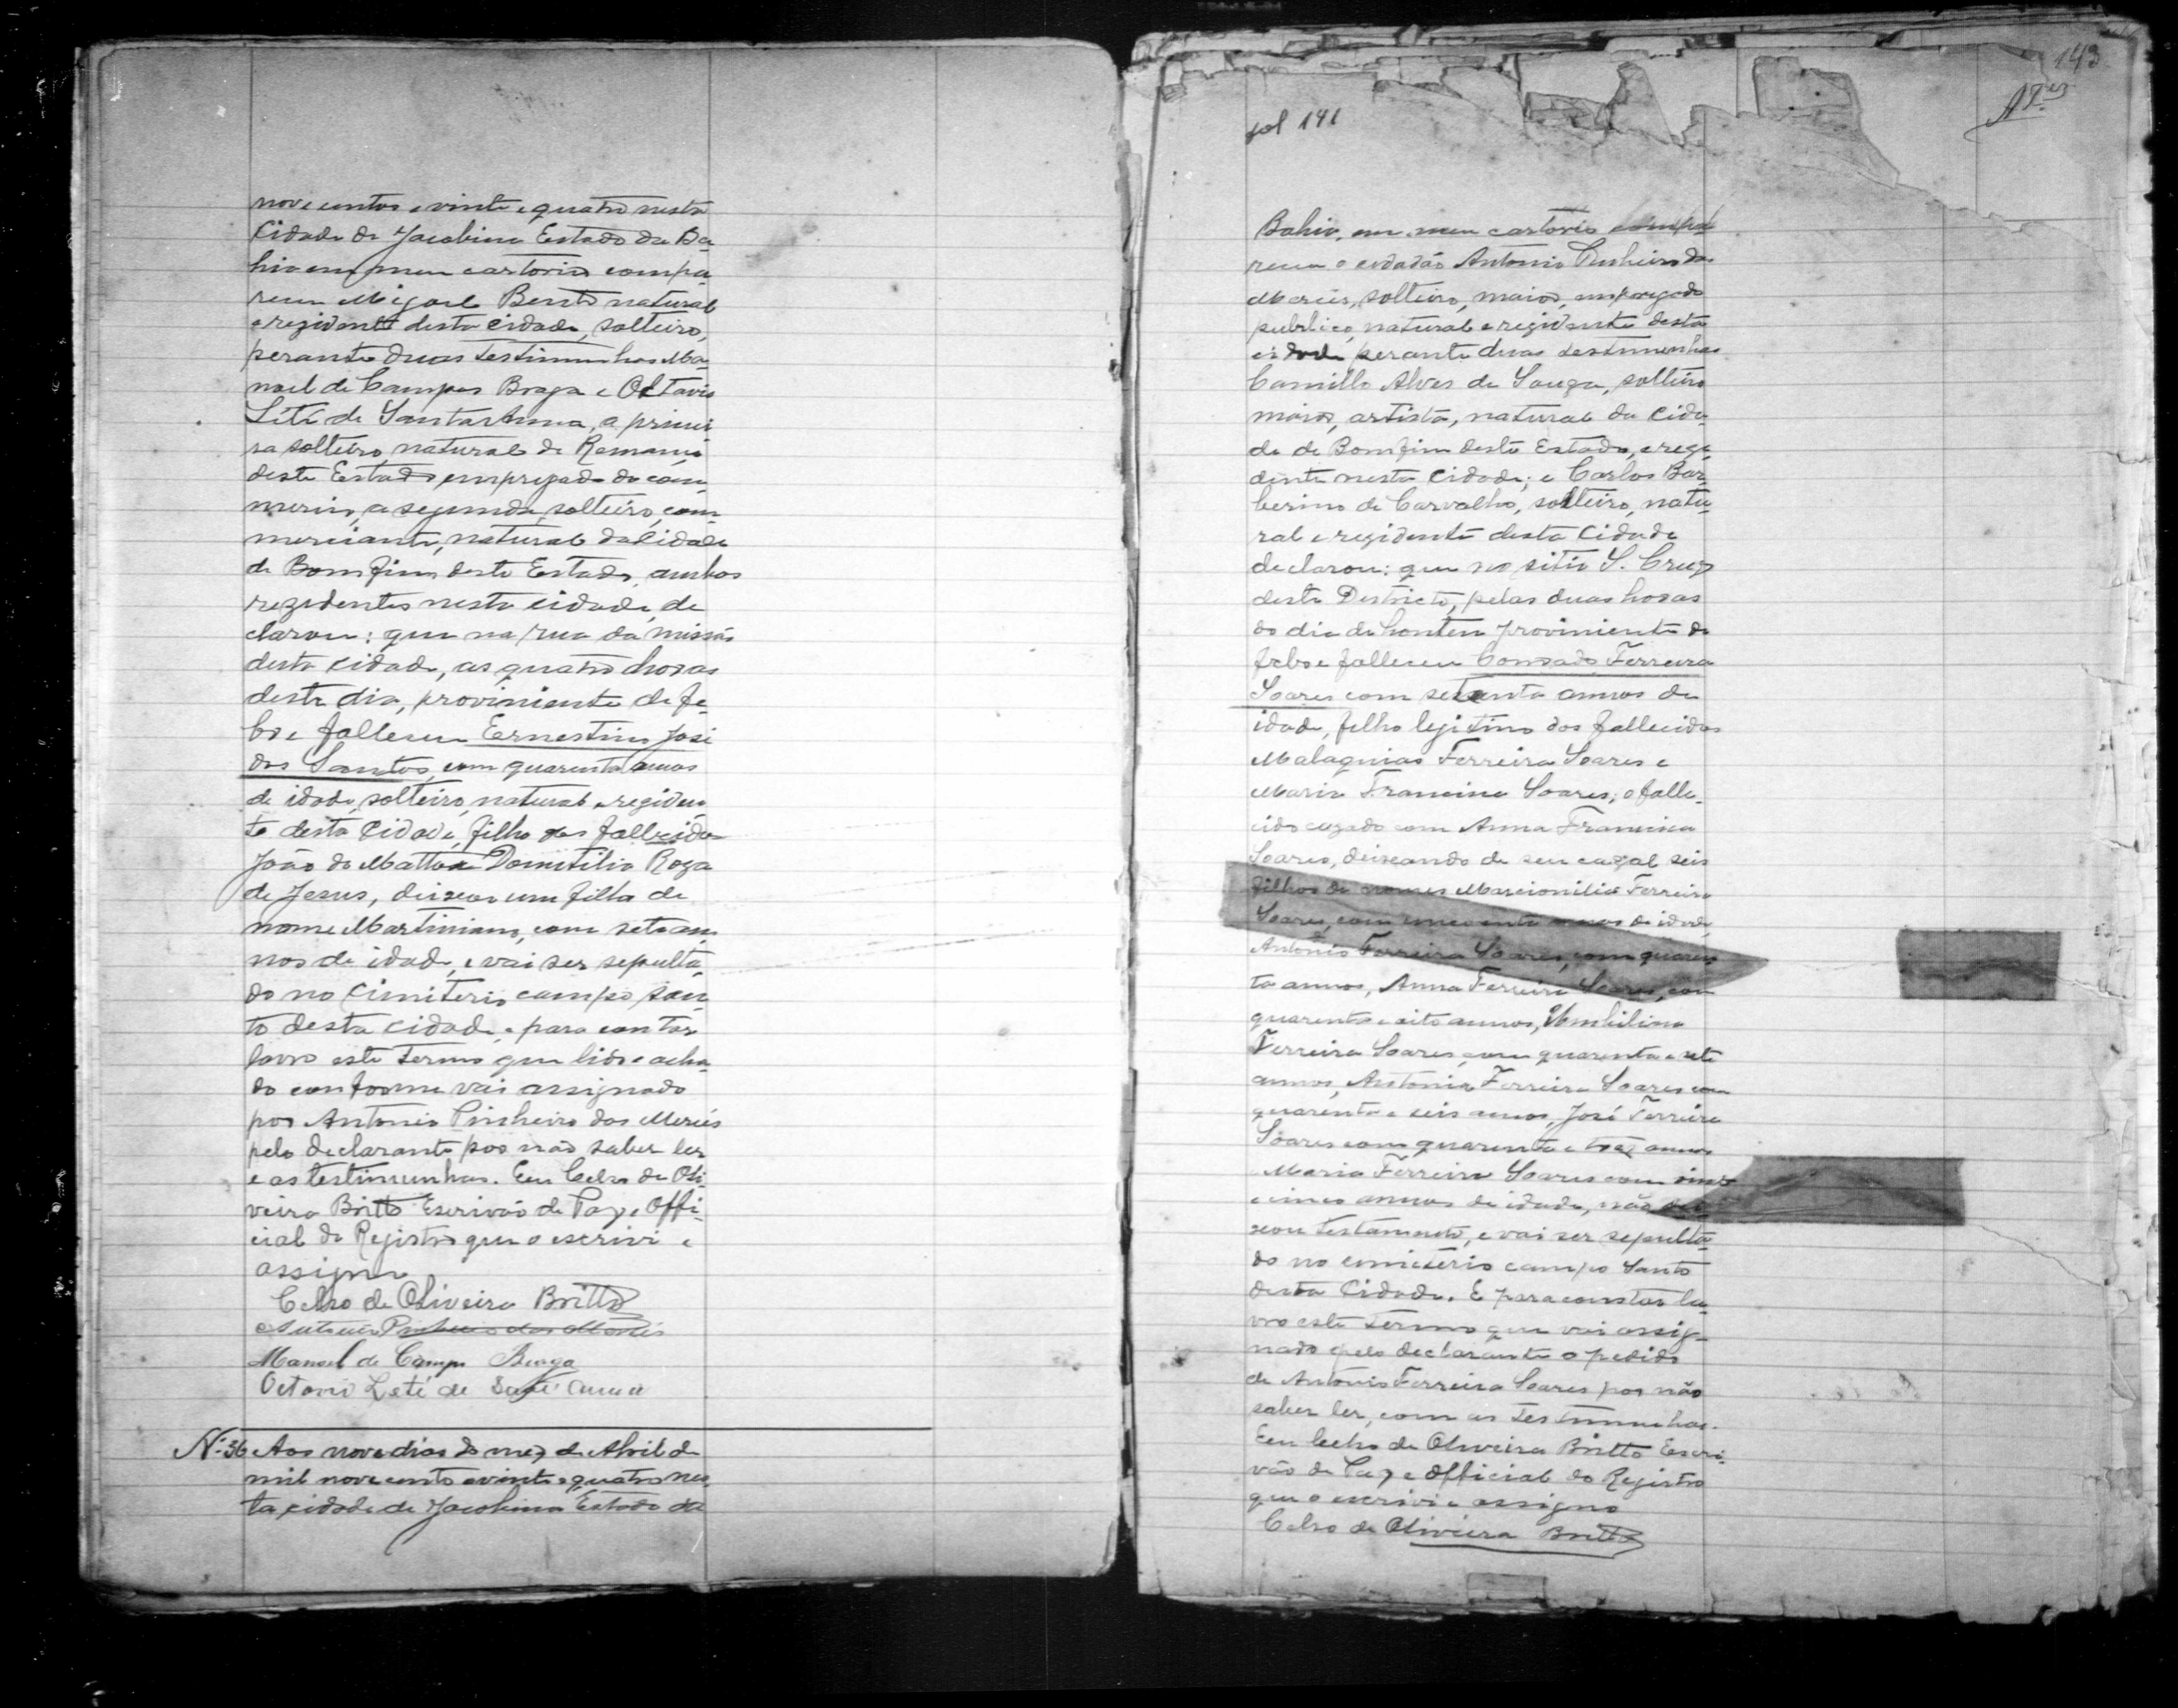 novecentos e vinte e quatro nesta
Cidade de Jacobina Estado da Ba-
hia em meu cartorio compa-
receu Miguel Bento natural
e rezidente desta cidade, solteiro,
perante duas testimunhas Ma-
noel de Campos Braga e Octavio
Leté de Santa Anna, o primei-
ro solteiro, natural de Remanso
deste Estado empregado do com-
mercio, o segundo, solteiro, com-
merciante, natural da Cidade
de Bomfim deste Estado, ambos
rezidentes nesta cidade, de-
clarou: que na rua da missão
desta cidade, as quatro horas
deste dia, proviniente de fe-
bre falleceu Ernestino José
dos Santos, com quarenta annos
de idade, solteiro, natural e reziden-
te desta Cidade, filho dos fallecidos
João de Mattos e Domitilia Roza
de Jesus, deixou um filho de
nome Martiniano, com sete an-
nos de idade, e vai ser sepulta-
do no Cimiterio campo san-
to desta cidade, e para contar
lavro este termo que lido e acha-
do conforme vai assignado
por Antonio Pinheiro das Mercês
pelo declarante por não saber ler
e as testimunhas. Eu Celso de Oli-
veira Britto Escrivão de Paz e Offi-
cial do Registro que o escrivi e
assigno
Celso de Oliveira Britto
Antonio Pinheiro das Mercês
Manoel de Campos Braga
Octavio Leté de Sant'Anna
N: 36 Aos nove dias do mez de Abril de
mil novecento e vinte e quatro nes-
ta cidade de Jacobina Estado da
143
fol 141
Bahia, em meu cartorio compa-
receu o cidadão Antonio Pinheiro das
Mercês, solteiro, maior, empregado
publico, natural e rezidente desta
cidade perante duas testimunhas
Camillo Alves de Souza, solteiro
maior, artista, natural da Cida-
de de Bomfim deste Estado, e rezi-
dente nesta Cidade; e Carlos Bar-
berino de Carvalho, solteiro, natu-
ral e rezidente desta Cidade
declarou: que no sitio S. Cruz
deste Destricto, pelas duas horas
do dia de hontem proviniente de
febre falleceu Conrado Ferreira
Soares com setenta annos de
idade, filho legitimo dos fallecidos
Malaquias Ferreira Soares e
Maria Francina Soares; o falle-
cido cazado com Anna Francisca
Soares, deixando de seu cazal seis
filhos de nomes Marcionilia Ferreira
Soares, com cincoenta annos de idade,
Antonio Ferreira Soares, com quaren-
ta annos, Anna Ferreira Soares, com
quarenta e oito annos, Umbilina
Ferreira Soares, com quarenta e sete
annos, Antonia Ferreira Soares com
quarenta e seis annos, José Ferreira
Soares com quarenta e trez annos
e Maria Ferreira Soares com vinte
e cinco annos de idade, não dei-
xou testamento, e vai ser sepulta-
do no cimiterio campo Santo
desta Cidade. E para constar la-
vro este termo que vai assig-
nado pelo declarante a pedido
de Antonio Ferreira Soares por não
saber ler, com as testimunhas.
Eu Celso de Oliveira Britto Escri-
vão de Paz e Official do Registro
que o escrivi e assigno
Celso de Oliveira Britto